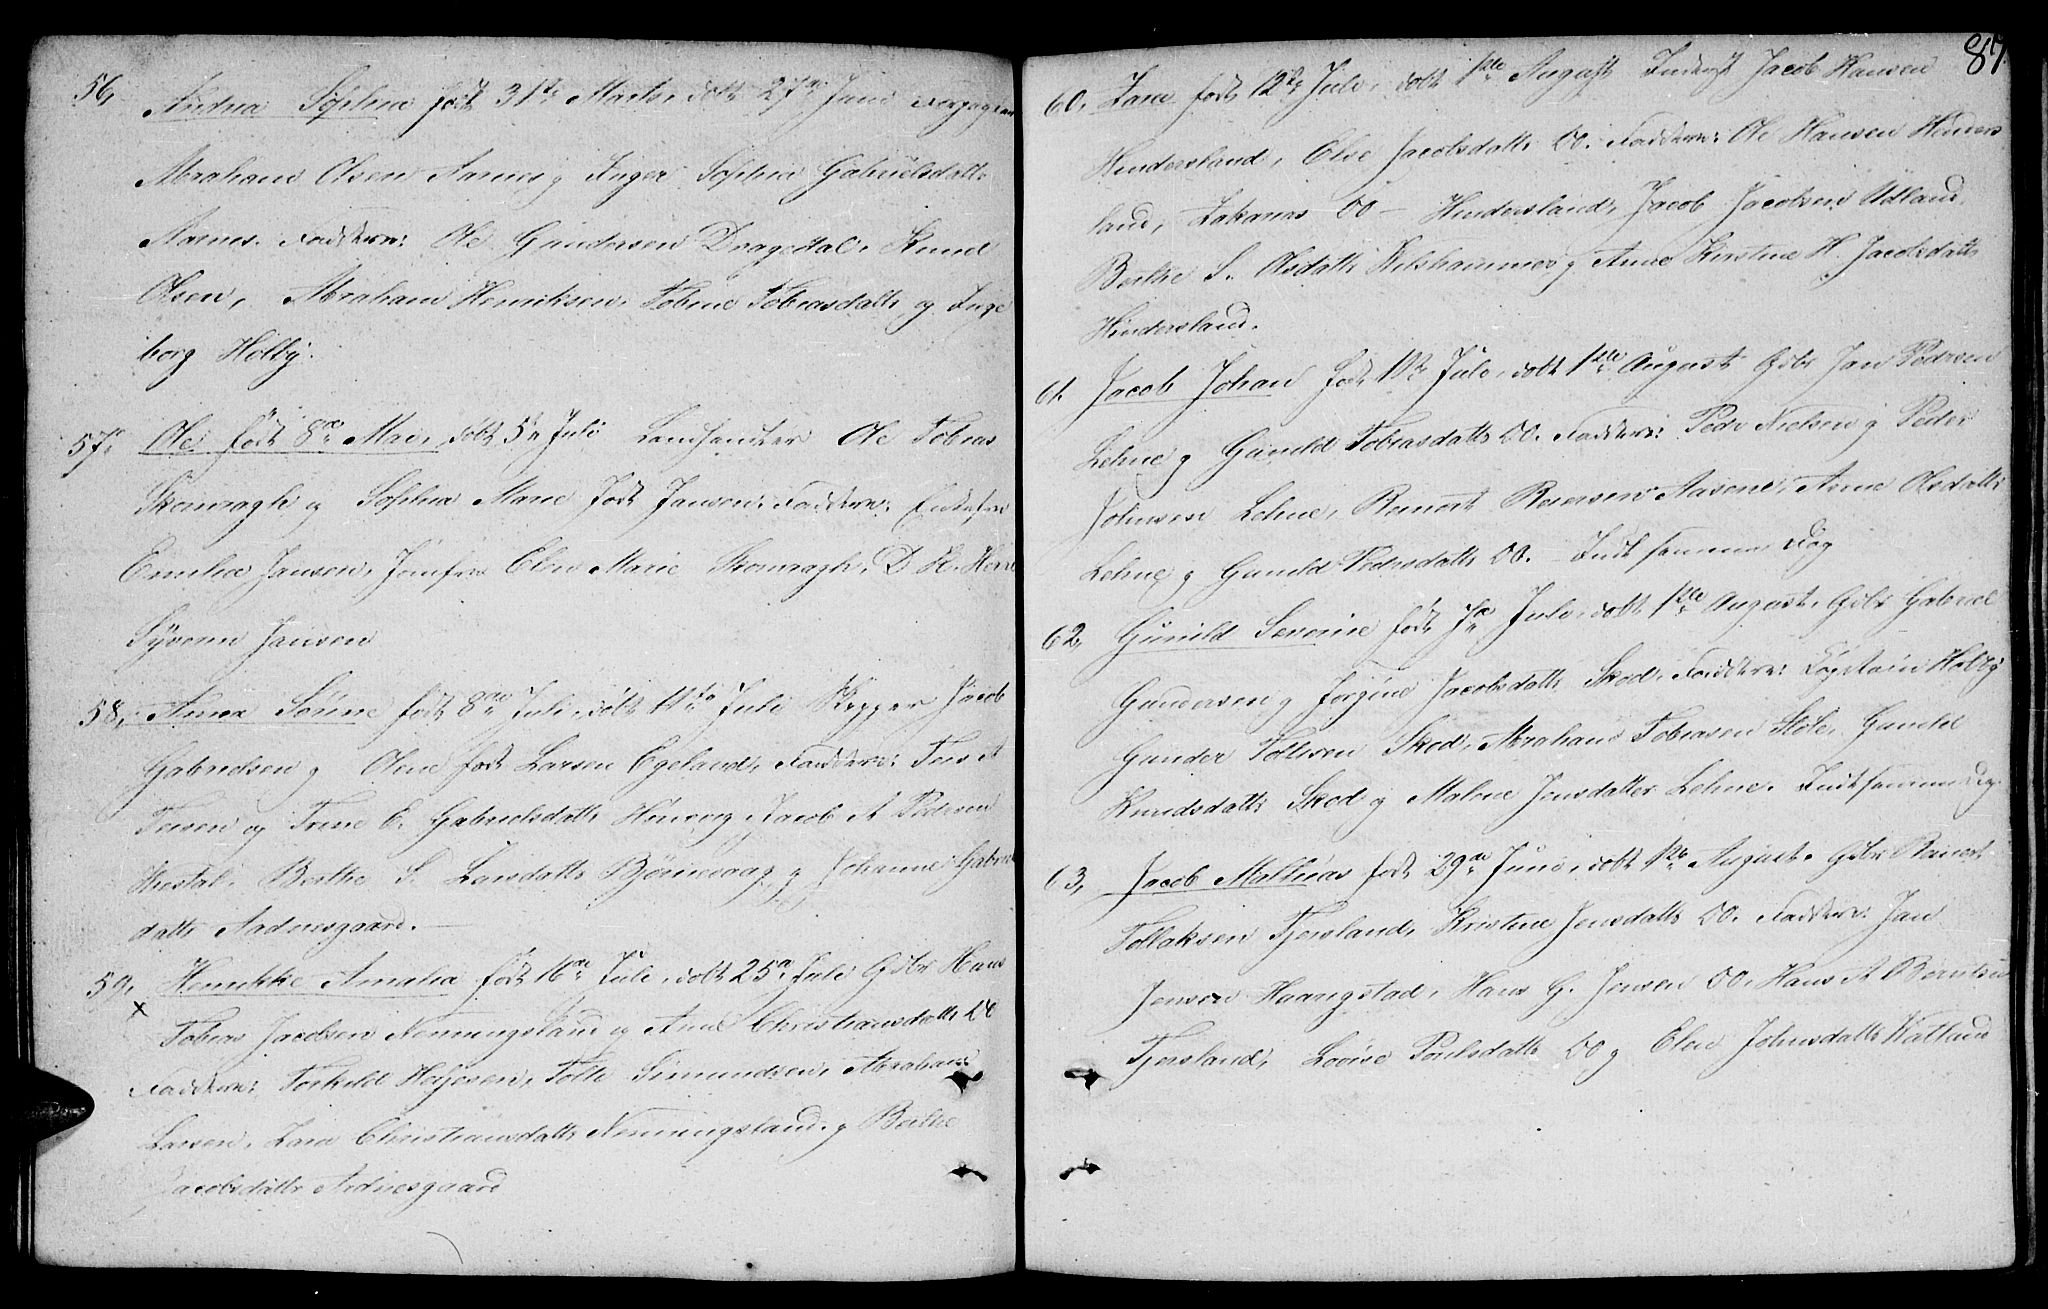 56, Andrea Sophia født 31te Marts, døbt 27de Juni
Abraham Olsen Aanes og Inger Sophia Gabrielsdatt.
Aanes. Faddere: Ole Gundersen Dragedal, Knud
Olsen, Abraham Henriksen, Tobine Tobiasdatt. og Inge
borg Holby.
57, Ole født 8de Mai, døbt 5te Juli Landhandler Ole Tobias
Skonragh og Sophia Marie født Jansen. Faddere: Enkefru
Emilia Jansen, Jomfru Elen Marie Skonragh,
Jansen
58, Anna Sørine født 8de Juli, døbt 11te Juli Skipper Jacob
Gabrielsen og Olene født Larsen Egeland, Faddere:
Tersen og Trine E. Gabrielsdatt. Hønevig, Jacob A Pedersen
Berthe S. Larsdatt. Bjørnevaag og Johanne Gabriel
datt. Aadnesgaard.
59, Henrikke Amalia født 16de Juli, døbt 25de Juli Gbr. Hans
x Tobias Jacobsen Nenningsland og Anne Christiansdatt. do
Faddere: Torkild Simundsen, Abraham
Larsen, Zara Christiansdatt. Nenningsland og Berthe
Jacobsdatt. Ardnesgaard
87.
60, Zara født 12te Juli, døbt 1ste August Inderst Jacob Hansen
Hindersland, Else Jacobsdatt. do. Faddere: Ole Hansen Hinders
land, Zakarias do - Hindersland, Jacob Jacobsen Udland,
Berthe S. Olsdatt. og Anne Kirstine H. Jacobsdatt.
Hindersland.
61. Jacob Johan født 10de Juli, døbt 1ste August Gbr. Jan Pedersen
Lehne og Gunild Tobiasdatt. do. Faddere: Peder Nielsen og Peder
Johnsen Lehne, Reinert Reiersen Aasene, Anne Olsdatt.
Lehne og Gunild Pedersdatt. do. - Indt samme Dag
62, Gunild Severine født Juli, døbt 1ste August, Gbr. Gabriel
Gundersen og Jørgine Jacobsdatt. Skod. Faddere: Captain Holby
Gunder Tollisen Skod, Abraham Tobiasen Støle, Gunild
Knudsdatt. Skod og Malene Jensdatter Lehne. Indt samme Dag.
63, Jacob Mathias født 29de Juni, døbt 1ste August. Gbr. Reinert
Tollaksen Tjersland, Kristine Jensdatt. do. Faddere: Jan
Jensen Haangstad, Hans G. Jensen do, Hans A Berntsen
Tjersland, Lovise Poulsdatt. do og Elen Johnsdatt. Katland